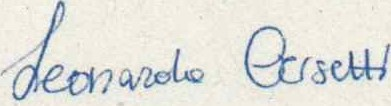 Leonardo Corsetti